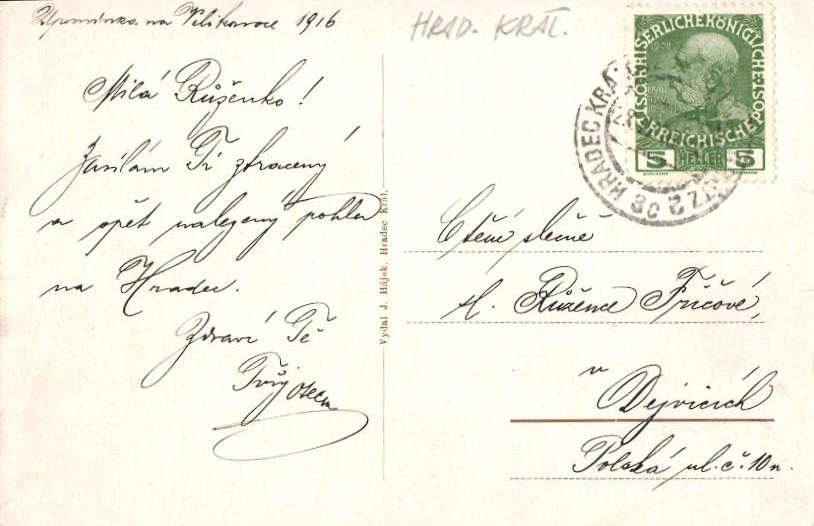 Upomínka na Velikonoce 1916
HRAD. KRÁL.
Milá Růženko!
Zasílám Ti ztracený
a opět nalezený pohled
na Hradec.
Zdraví Tě
Tvůj otec
Vydal J. Hájek, Hradec Král.
KAISERLICHE KÖNIGLICHE
ÖSTERREICHISCHE POST
1908
5 HELLER 5
HRADEC KRÁ
Ctěné slečně
sl. Růžence Fričové,
v
Dejvicích
Polská ul. č. 10 n.